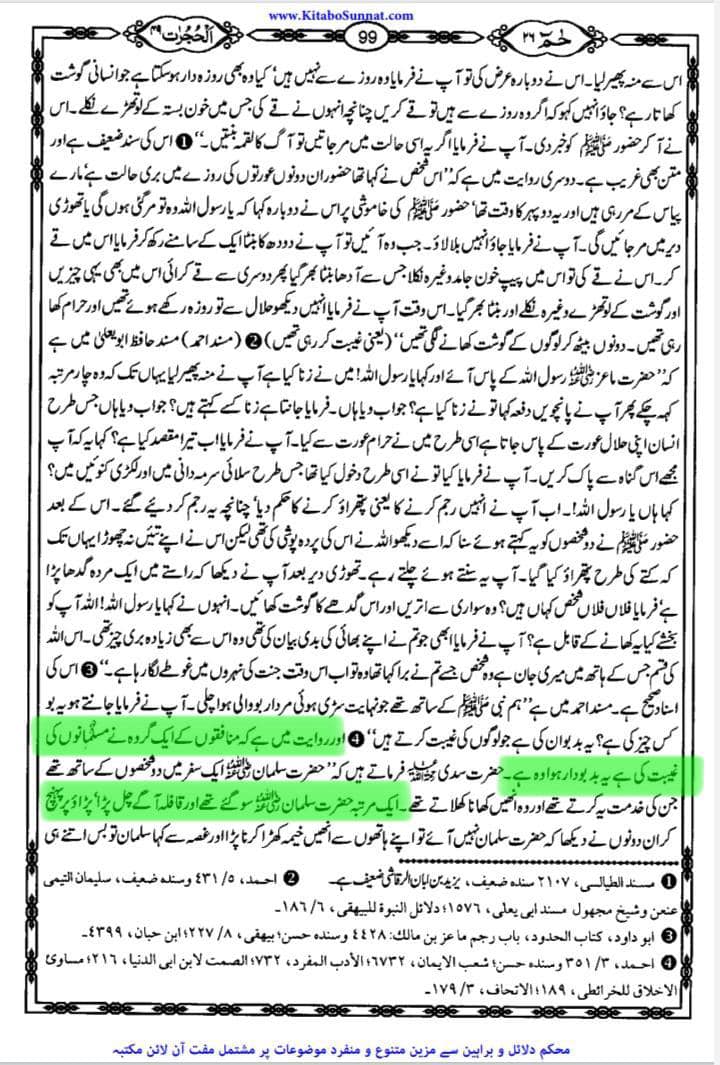 www.KitaboSunnat.com
حٰمٓ ۲۶
99
اَلْحُجُرٰت ۴۹
اس سے منہ پھیر لیا۔ اس نے دوبارہ عرض کی تو آپ نے فرمایا وہ روزے سے نہیں ہیں' کیا وہ بھی روزہ دار ہو سکتا ہے جو انسانی گوشت
کھاتا رہے؟ جاؤ انہیں کہو کہ اگر وہ روزے سے ہیں تو قے کریں چنانچہ انہوں نے قے کی جس میں خون بستہ کے لوتھڑے نکلے۔ اس
نے آ کر حضور ﷺ کو خبر دی۔ آپ نے فرمایا اگر یہ اسی حالت میں مر جاتیں تو آگ کا لقمہ بنتیں۔'' ❶ اس کی سند ضعیف ہے اور
متن بھی غریب ہے۔ دوسری روایت میں ہے کہ ''اس شخص نے کہا تھا حضور ان دونوں عورتوں کی روزے میں بری حالت ہے' مارے
پیاس کے مر رہی ہیں اور یہ دوپہر کا وقت تھا' حضور ﷺ کی خاموشی پر اس نے دوبارہ کہا کہ یا رسول اللہ وہ تو مر گئی ہوں گی یا تھوڑی
دیر میں مر جائیں گی۔ آپ نے فرمایا جاؤ انہیں بلا لاؤ۔ جب وہ آئیں تو آپ نے دودھ کا بٹا ایک کے سامنے رکھ کر فرمایا اس میں قے
کر۔ اس نے قے کی تو اس میں پیپ خون جامد وغیرہ نکلا جس سے آدھا بٹا بھر گیا پھر دوسری سے قے کرائی اس میں بھی یہی چیزیں
اور گوشت کے لوتھڑے وغیرہ نکلے اور بٹا بھر گیا۔ اس وقت آپ نے فرمایا انہیں دیکھو حلال سے تو روزہ رکھے ہوئے تھیں اور حرام کھا
رہی تھیں۔ دونوں بیٹھ کر لوگوں کے گوشت کھانے لگی تھیں'' (یعنی غیبت کر رہی تھیں) ❷ (مسند احمد) مسند حافظ ابو یعلیٰ میں ہے
کہ ''حضرت ماعز ؓ رسول اللہ کے پاس آئے اور کہا یا رسول اللہ! میں نے زنا کیا ہے آپ نے منہ پھیر لیا یہاں تک کہ وہ چار مرتبہ
کہہ چکے پھر آپ نے پانچویں دفعہ کہا تو نے زنا کیا ہے؟ جواب دیا ہاں۔ فرمایا جانتا ہے زنا کسے کہتے ہیں؟ جواب دیا ہاں جس طرح
انسان اپنی حلال عورت کے پاس جاتا ہے اسی طرح میں نے حرام عورت سے کیا۔ آپ نے فرمایا اب تیرا مقصد کیا ہے؟ کہا یہ کہ آپ
مجھے اس گناہ سے پاک کریں۔ آپ نے فرمایا کیا تو نے اسی طرح دخول کیا تھا جس طرح سلائی سرمہ دانی میں اور لکڑی کنوئیں میں؟
کہا ہاں یا رسول اللہ!۔ اب آپ نے انہیں رجم کرنے کا یعنی پتھراؤ کرنے کا حکم دیا' چنانچہ یہ رجم کر دیئے گئے۔ اس کے بعد
حضور ﷺ نے دو شخصوں کو یہ کہتے ہوئے سنا کہ اسے دیکھو اللہ نے اس کی پردہ پوشی کی تھی لیکن اس نے اپنے تئیں نہ چھوڑا یہاں تک
کہ کتے کی طرح پتھراؤ کیا گیا۔ آپ یہ سنتے ہوئے چلتے رہے۔ تھوڑی دیر بعد آپ نے دیکھا کہ راستے میں ایک مردہ گدھا پڑا
ہے' فرمایا فلاں فلاں شخص کہاں ہیں؟ وہ سواری سے اتریں اور اس گدھے کا گوشت کھائیں۔ انہوں نے کہا یا رسول اللہ! اللہ آپ کو
بخشے کیا یہ کھانے کے قابل ہے؟ آپ نے فرمایا ابھی جو تم نے اپنے بھائی کی بدی بیان کی تھی وہ اس سے بھی زیادہ بری چیز تھی۔ اس اللہ
کی قسم جس کے ہاتھ میں میری جان ہے وہ شخص جسے تم نے برا کہا تھا وہ تو اب اس وقت جنت کی نہروں میں غوطے لگا رہا ہے۔'' ❸ اس کی
اسناد صحیح ہے۔ مسند احمد میں ہے ''ہم نبی ﷺ کے ساتھ تھے جو نہایت سڑی ہوئی مردار بو والی ہوا چلی۔ آپ نے فرمایا جانتے ہو یہ بو
کس چیز کی ہے؟ یہ بدبو ان کی ہے جو لوگوں کی غیبت کرتے ہیں'' ❹ اور روایت میں ہے کہ منافقوں کے ایک گروہ نے مسلمانوں کی
غیبت کی ہے یہ بدبودار ہوا وہ ہے۔ حضرت سدی ؒ فرماتے ہیں کہ ''حضرت سلمان ؓ ایک سفر میں دو شخصوں کے ساتھ تھے
جن کی خدمت یہ کرتے تھے اور وہ انھیں کھانا کھلاتے تھے۔ ایک مرتبہ حضرت سلمان ؓ سو گئے تھے اور قافلہ آگے چل پڑا' پڑاؤ پر پہنچ
کر ان دونوں نے دیکھا کہ حضرت سلمان نہیں آئے تو اپنے ہاتھوں سے انھیں خیمہ کھڑا کرنا پڑا اور غصہ سے کہا سلمان تو بس اتنے ہی
❶ مسند الطیالسی، ۲۱۰۷ سندہ ضعیف، یزید بن ابان الرقاشی ضعیف ہے۔ ❷ احمد، ۵/ ۴۳۱ وسندہ ضعیف، سلیمان التیمی
عنعن وشیخ مجهول مسند ابی یعلی، ۱۵۷۶؛ دلائل النبوة للبیهقی، ۶/ ۱۸۶۔
❸ ابو داود، کتاب الحدود، باب رجم ماعز بن مالك: ۴۴۲۸ وسندہ حسن؛ بیهقی، ۸/ ۲۲۷؛ ابن حبان، ۴۳۹۹۔
❹ احمد، ۳/ ۳۵۱ وسندہ حسن؛ شعب الایمان، ۶۷۳۲؛ الأدب المفرد، ۷۳۲؛ الصمت لابن ابی الدنیا، ۲۱۶؛ مساوئ
الاخلاق للخرائطی، ۱۸۹؛ الاتحاف، ۳/ ۱۷۹۔
محکم دلائل و براہین سے مزین متنوع و منفرد موضوعات پر مشتمل مفت آن لائن مکتبہ